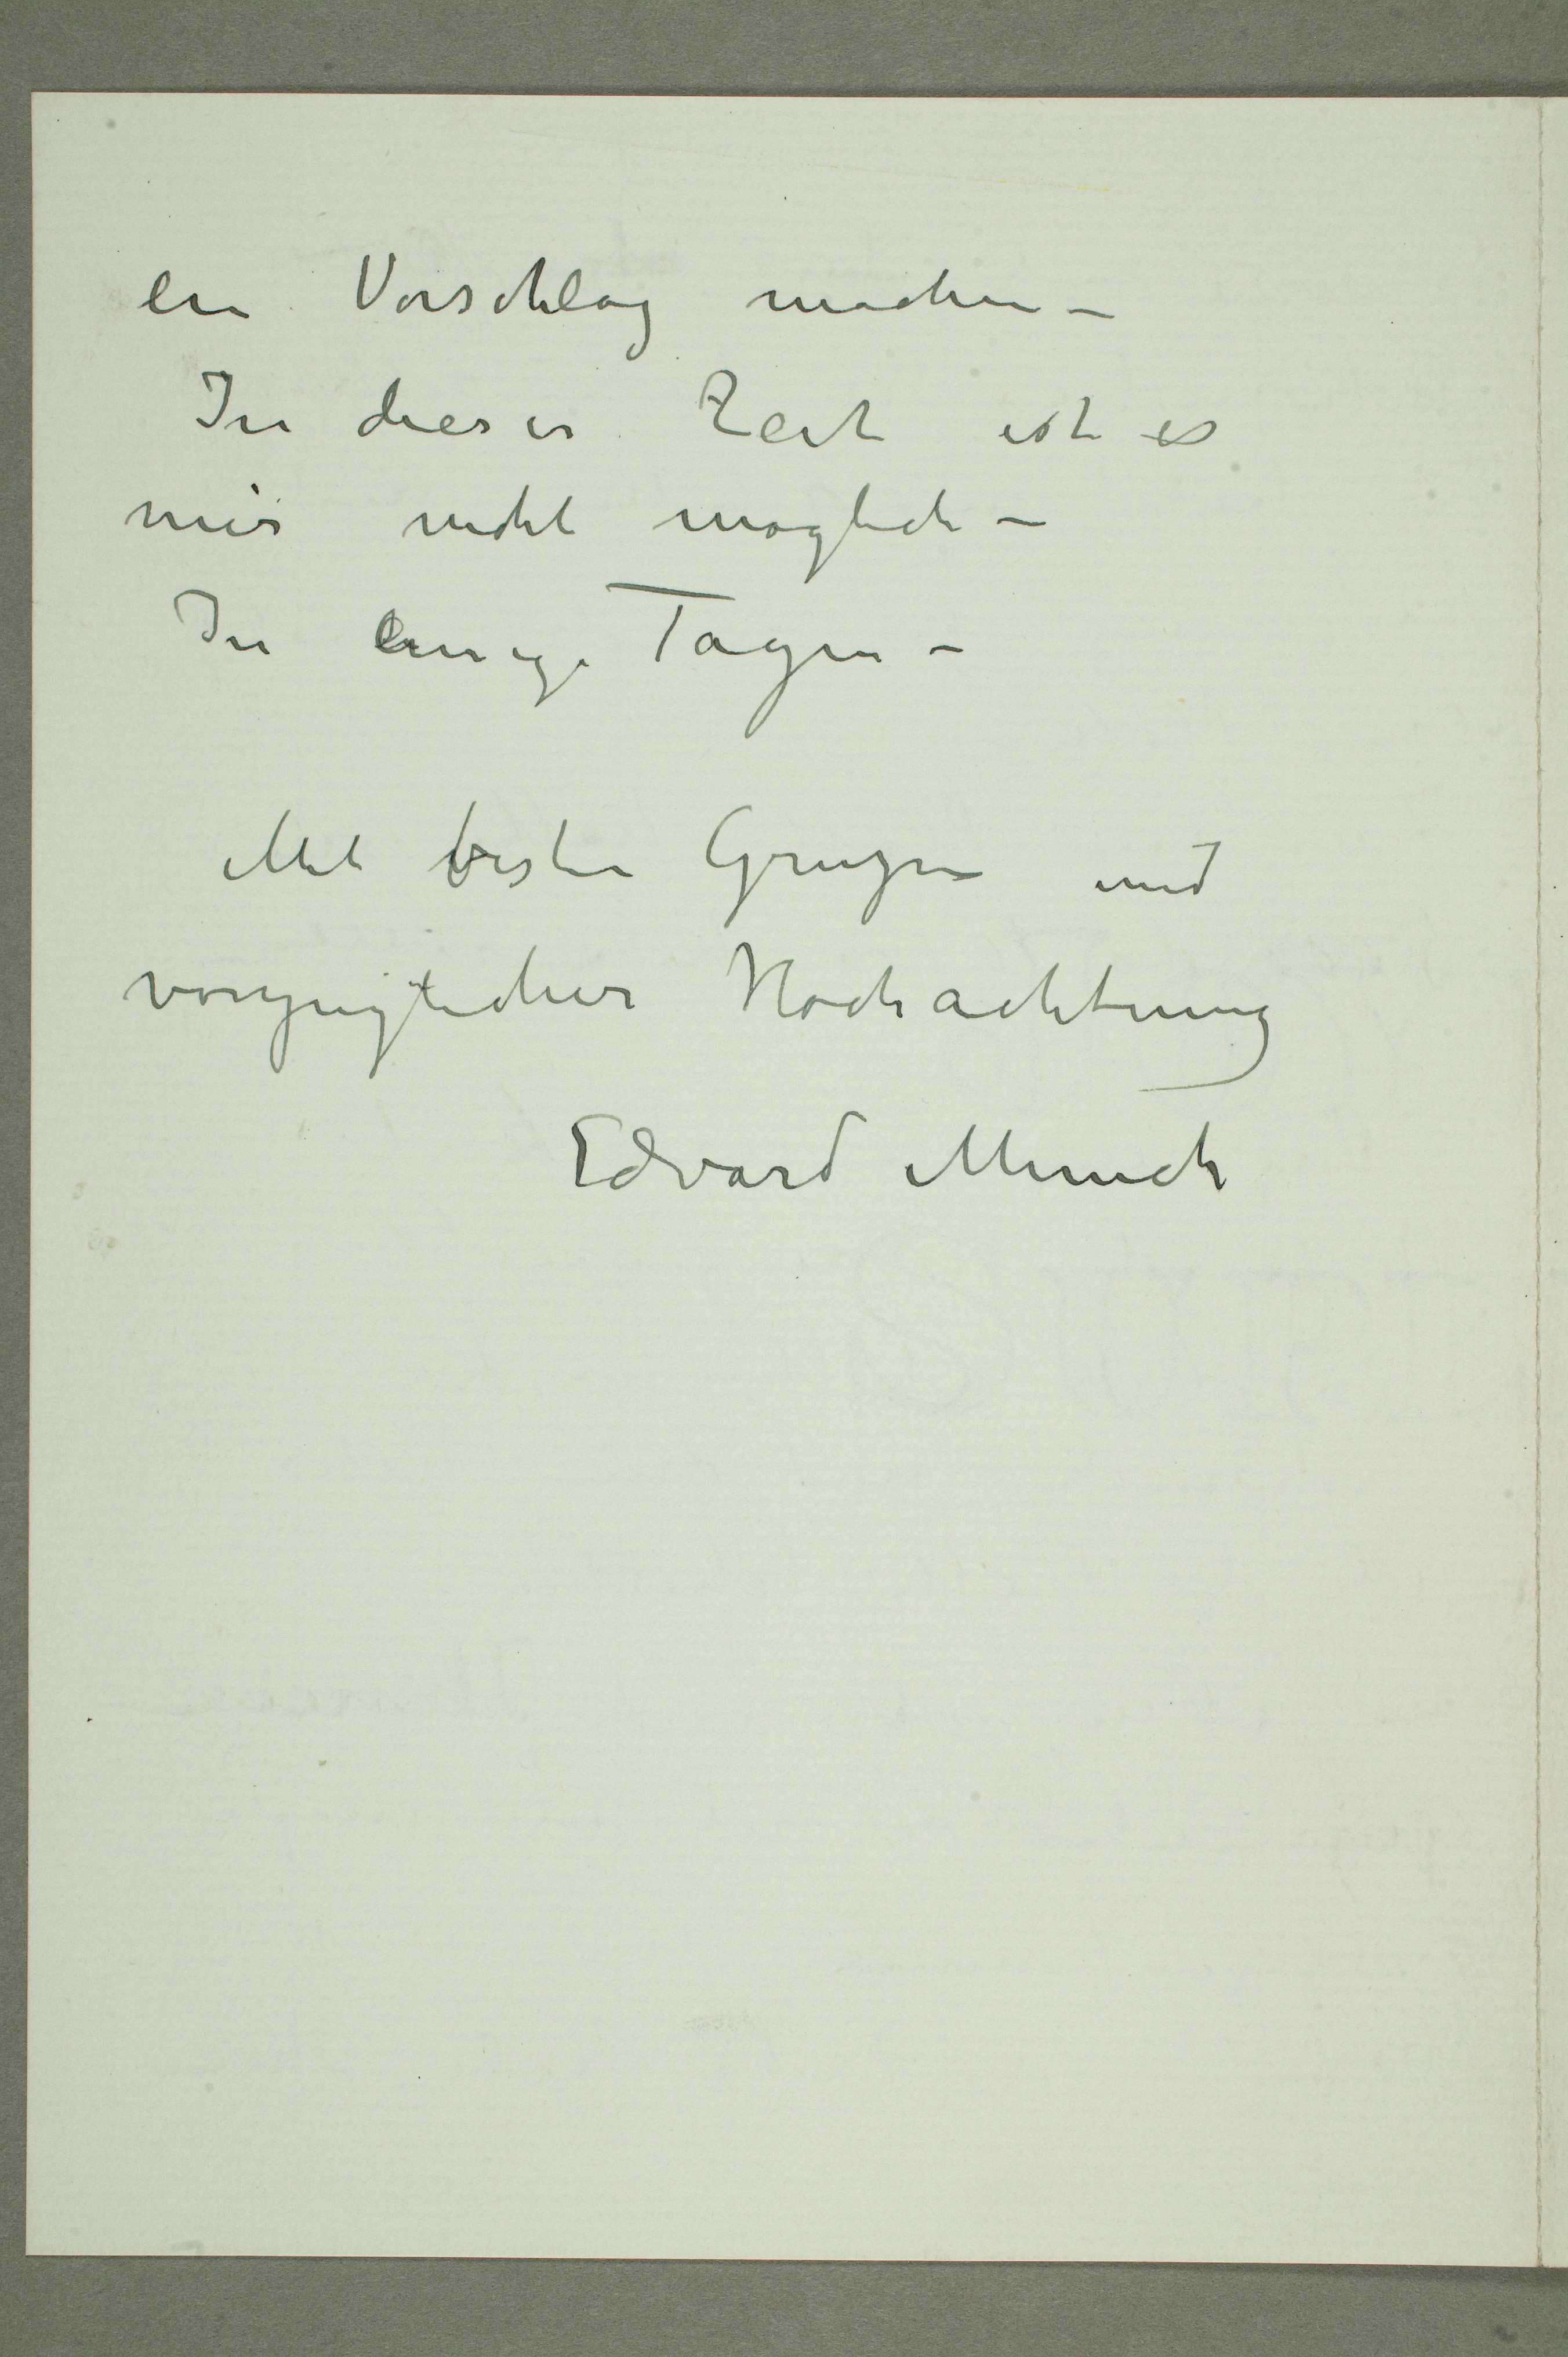 ein Vorschlag machen –
In dieser Zeit ist es
mir nicht moglich –
In einige Tagen –
Mit besten Gruzen und
vorzuglicher Hochachtung
Edvard Munch